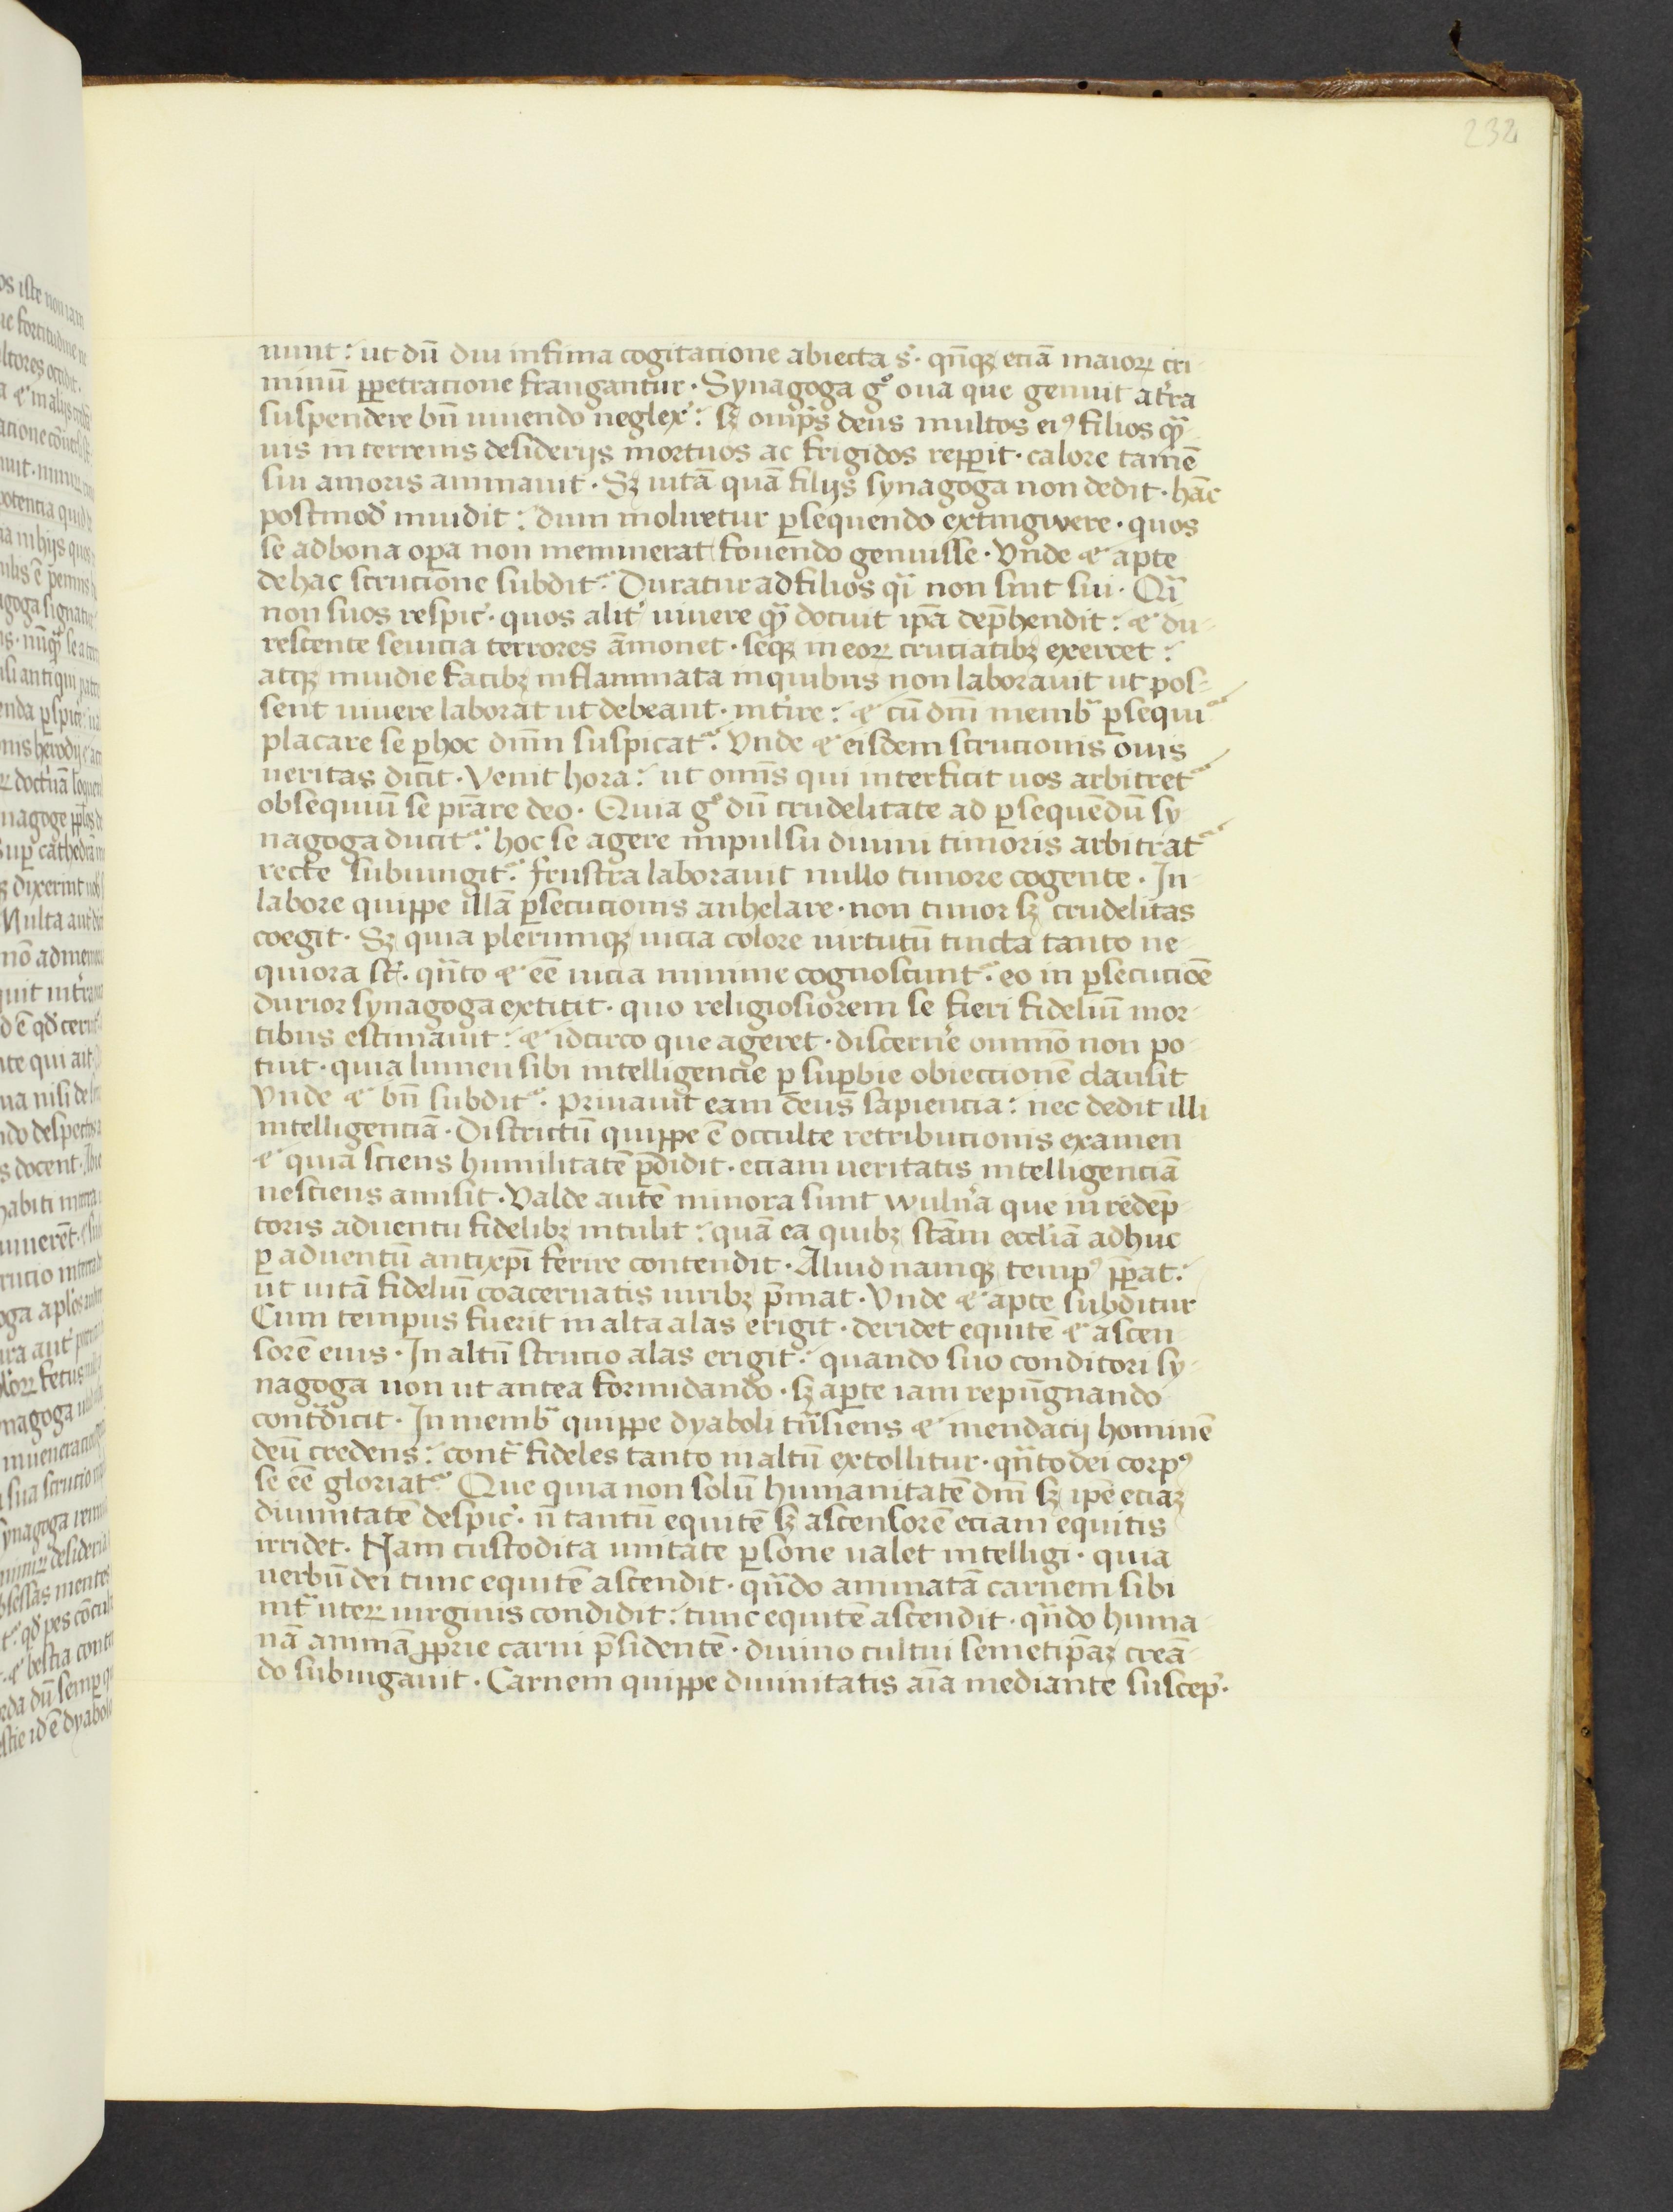 232
nunt: ut dū diu infima cogitacione abiecta s̄· qn̄qꝫ eciā maioꝝ cri-
minū ꝑpetracione frangantur· Synagoga gͦ oua que genuit a tr̄a
suspendere bn̄ uiuendo neglex̄: sꝫ omp̄s deus multos eiꝰ filios qͣ̄-
uis in terrenis desiderijs mortuos ac frigidos repꝑit· calore tamē
sui amoris animauit· Sꝫ uitā quā filijs synagoga non dedit· hāc
postmod̄ inuidit: dum moliretur ꝑsequendo extingwere· quos
se ad bona oꝑa non meminerat fouendo genuisse· Vnde ⁊ apte
de hac strucione subdit᷑· Duratur ad filios qͣ̄ non sint sui· Qͣ̄
non suos respic̄· quos alit̄ uiuere qͣ̄ docuit ip̄a dep̄hendit: ⁊ du-
rescente seuicia terrores āmonet· seqꝫ in eoꝝ cruciatibꝫ exercet:
atqꝫ inuidie facibꝫ inflammata in quibus non laborauit ut pos-
sent uiuere laborat ut debeant· int̄ire: ⁊ cū dn̄i membͣ ꝑsequit᷑
placare se ꝑ hoc dn̄m suspicat᷑· Vnde ⁊ eisdem strucionis ouis
ueritas dicit· Venit hora: ut omīs qui interficit uos arbitret᷑
obsequiū se pr̄are deo· Quia gͦ dū crudelitate ad ꝑsequēdū sy-
nagoga ducit᷑: hoc se agere impulsu diuini timoris arbitrat᷑
recte subiungit᷑· frustra laborauit nullo timore cogente· In
labore quippe illā ꝑsecucionis anhelare· non timor sꝫ crudelitas
coegit· Sꝫ quia plerumqꝫ uicia colore uirtutū tincta tanto ne-
quiora st̄· qn̄to ⁊ eē uicia minime cognoscunt᷑· eo in ꝑsecucioē
durior synagoga extitit· quo religiosiorem se fieri fideliū mor-
tibus estimauit: ⁊ idcirco que ageret· discern̄e omnīo non po-
tuit· quia lumen sibi intelligencie ꝑ suꝑbie obiectionē clausit
Vnde ⁊ bn̄ subdit᷑· Priuauit eam deus sapiencia: nec dedit illi
intelligenciā· Districtū quippe ē occulte retribucionis examen
⁊ quia sciens humilitatē ꝑdidit· eciam ueritatis intelligenciā
nesciens amisit· Valde autē minora sunt wuln̄a que in redēp-
toris aduentu fidelibꝫ intulit: quā ea quibꝫ sc̄am eccl̄iā adhuc
ꝑ aduentū antixp̄i ferire contendit· Ad illud namqꝫ tempꝰ p̄ꝑat:
ut uitā fideliū coaceruatis uiribꝫ p̄mat· Vnde ⁊ apte subditur
Cum tempus fuerit in alta alas erigit· deridet equitē ⁊ ascen-
sorē eius· In altū strucio alas erigit᷑· quando suo conditori sy-
nagoga non ut antea formidando· sꝫ aꝑte iam repūgnando
contͣdicit· In membͣ quippe dyaboli tn̄siens ⁊ mendacij hominē
deū credens: contͣ fideles tanto in altū extollitur· qn̄to dei corpꝰ
se eē gloriat᷑· Que quia non solū humanitatē dn̄i sꝫ ip̄ē eciaꝫ
diuinitatē despic̄· n̄ tantū equitē sꝫ ascensorē eciam equitis
irridet· Nam custodita unitate ꝑsone ualet intelligi· quia
uerbū dei tunc equitē ascendit· qn̄do animatā carnem sibi
int̄ uteꝝ uirginis condidit: tunc equitē ascendit· qn̄do huma-
nā animā ꝓprie carni p̄sidentē· diuino cultui semetip̄aꝫ creā-
do subiugauit· Carnem quippe diuinitatis aīa mediante suscep̄·